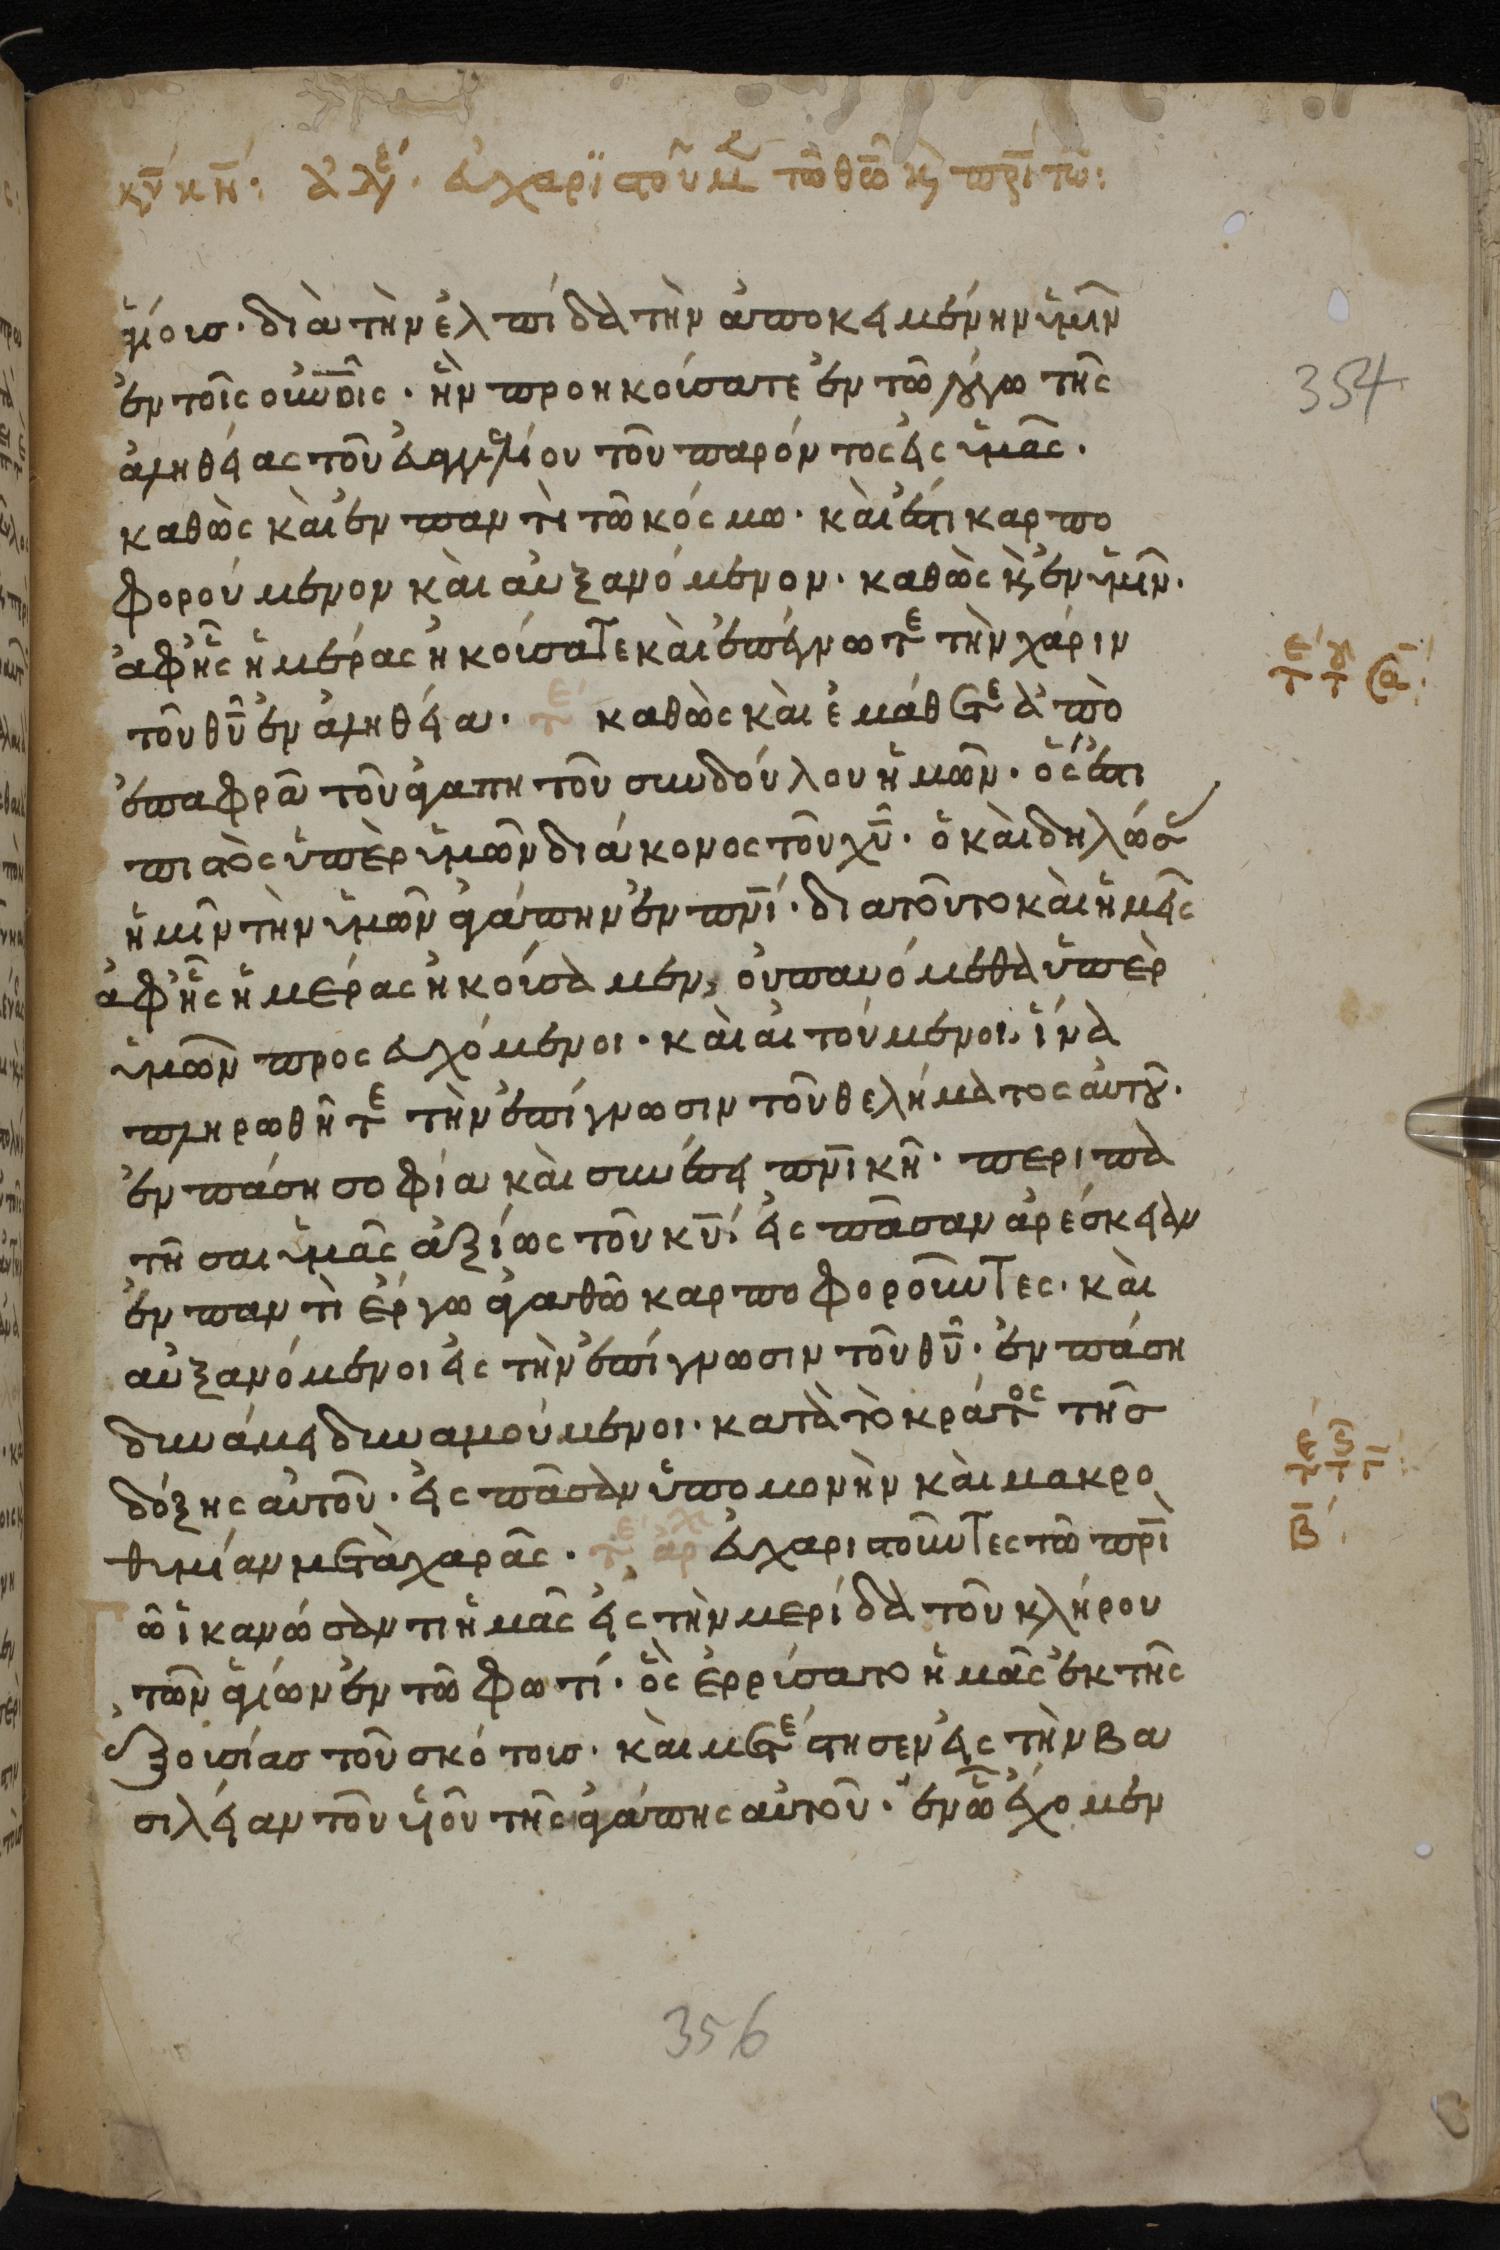 κυ κη: ἀδελ. εὐχαριστοῦμεν τῶ θῶ κ πρι τοῦ:
ἁγίοις· διὰ τὴν ἐλπίδα τὴν ἀποκειμένην ὑμῖν
ἐν τοῖς οὐνοῖς· ἣν προηκούσατε ἐν τῶ λόγω τῆς
ἀληθείας τοῦ εὐαγγελίου τοῦ παρόντος εἰς ὑμᾶς·
καθὼς καὶ ἐν παντὶ τῶ κόσμω· καὶ ἔστι καρπο
φορούμενον καὶ αὐξανόμενον· καθὼς κ ἐν ὑμῖν·
ἀφ' ἧς ἡμέρας ἠκούσατε καὶ ἐπέγνωτε τὴν χάριν
τοῦ θυ ἐν ἀληθεία· τε καθὼς καὶ ἐμάθετε ἀπὸ
ἐπαφρᾶ τοῦ ἀγαπητοῦ συνδούλου ἡμῶν· ὅς ἐστι
πιστὸς ὑπὲρ ὑμῶν διάκονος τοῦ χυ· ὁ καὶ δηλώσας
ἡμῖν τὴν ὑμῶν ἀγάπην ἐν πνι· διατοῦτο καὶ ἡμεῖς
ἀφ' ἧς ἡμέρας ἠκούσαμεν, οὐ παυόμεθα ὑπὲρ
ὑμῶν προσευχόμενοι· καὶ αἰτούμενοι, ἵνα
πληρωθῆτε τὴν ἐπίγνωσιν τοῦ θελήματος αὐτοῦ·
ἐν πάση σοφία καὶ συνέσει πνικῆ· περιπα
τῆσαι ὑμᾶς ἀξίως τοῦ κυ· εἰς πᾶσαν ἀρέσκειαν
ἐν παντὶ ἔργω ἀγαθῶ καρποφοροῦντες· καὶ
αὐξανόμενοι εἰς τὴν ἐπίγνωσιν τοῦ θυ· ἐν πάση
δυνάμει δυναμούμενοι· κατὰ τὸ κράτος τῆς
δόξης αὐτοῦ· εἰς πᾶσαν ὑπομονὴν καὶ μακρο
θυμίαν μετὰ χαρᾶς· τε ἀρχ εὐχαριστοῦντες τῶ πρι
ῶ ἱκανώσαντι ἡμᾶς εἰς τὴν μερίδα τοῦ κλήρου
τῶν ἁγίων ἐν τῶ φωτί· ὃς ἐρρύσατο ἡμᾶς ἐκ τῆς
ἐξουσίας τοῦ σκότους· καὶ μετέστησεν εἰς τὴν βα
σιλείαν τοῦ υἱοῦ τῆς ἀγάπης αὐτοῦ· ἐν ὧ ἔχομεν
354
τε
β
356